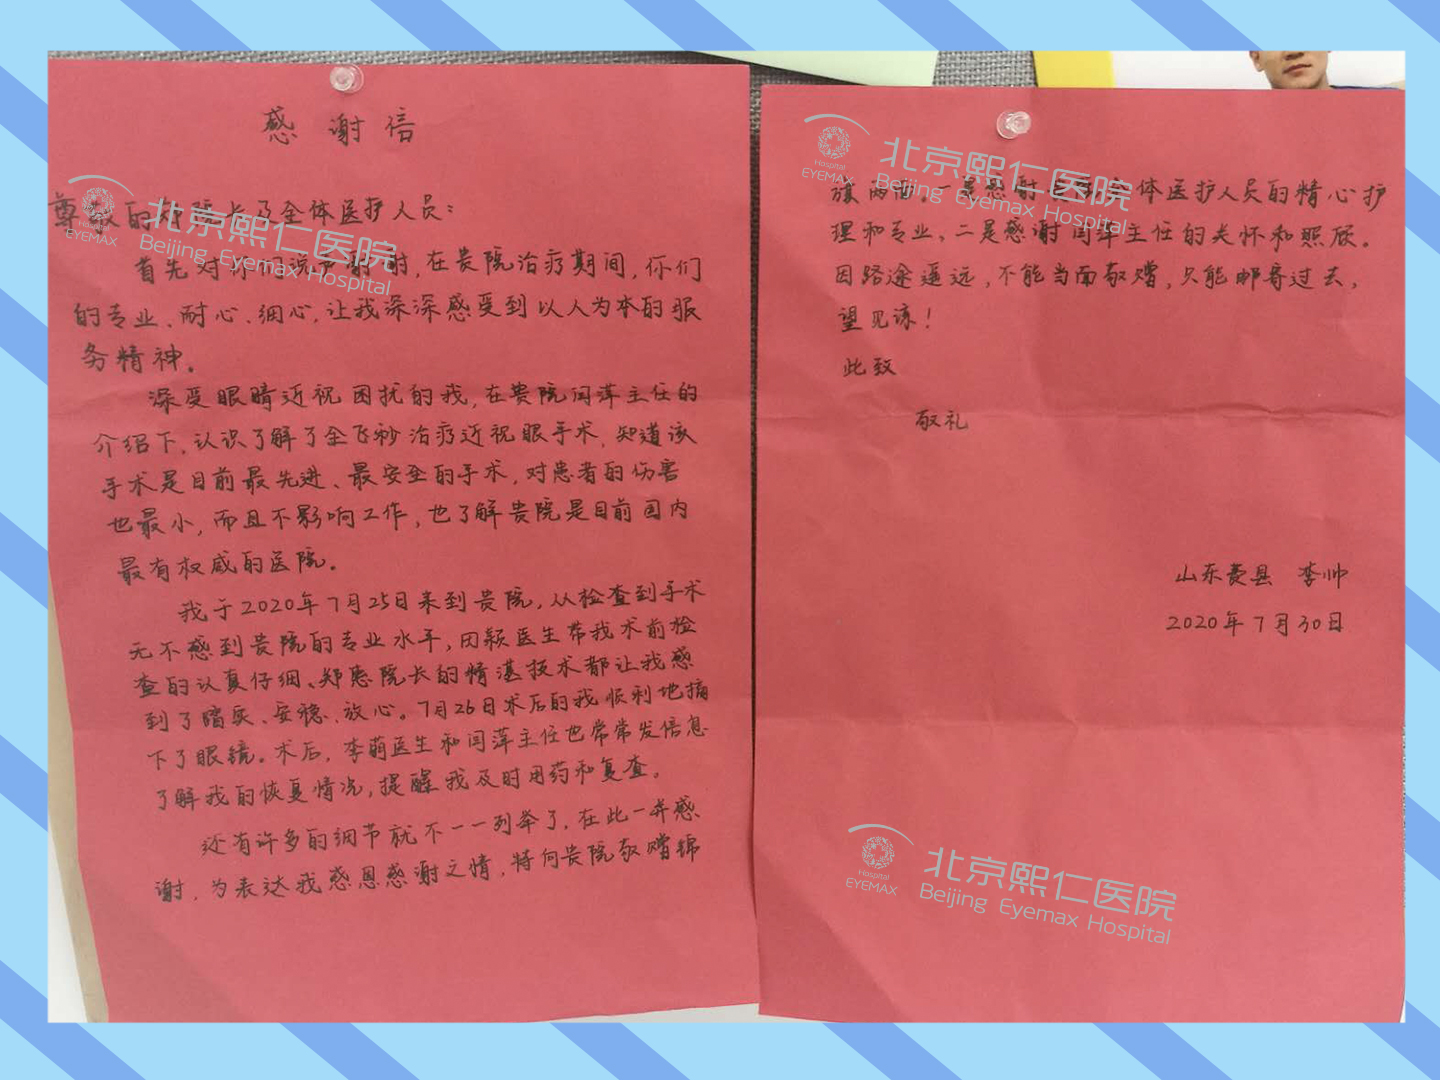 感谢信
尊敬的 院长及全体医护人员：
首先对你们说声 谢，在贵院治疗期间，你们
的专业、耐心、细心，让我深深感受到以人为本的服
务精神。
深受眼睛近视困扰的我，在贵院闫萍主任的
介绍下，认识了解了全飞秒治疗近视眼手术，知道该
手术是目前最先进、最安全的手术，对患者的伤害
也最小，而且不影响工作，也了解贵院是目前国内
最有权威的医院。
我于2020年7月25日来到贵院，从检查到手术
无不感到贵院的专业水平，因颖医生带我术前检
查的认真仔细、郑惠院长的精湛技术都让我感
到了踏实、安稳、放心。7月26日术后的我顺利地摘
下了眼镜。术后，李萌医生和闫萍主任也常常发信息
了解我的恢复情况，提醒我及时用药和复查。
还有许多的细节就不一一列举了，在此一并感
谢，为表达我感恩感谢之情，特向贵院敬赠锦
旗两面。一是感谢 体医护人员的精心护
理和专业、二是感谢闫萍主任的关怀和照顾。
因路途遥远，不能当面敬赠，只能邮寄过去，
望见谅！
此致
敬礼
山东费县 李帅
2020年7月30日
Hospital
EYEMAX
北京熙仁医院
Beijing Eyemax Hospital
Hospital
EYEMAX
北京熙仁医院
Beijing Eyemax Hospital
Hospital
EYEMAX
北京熙仁医院
Beijing Eyemax Hospital